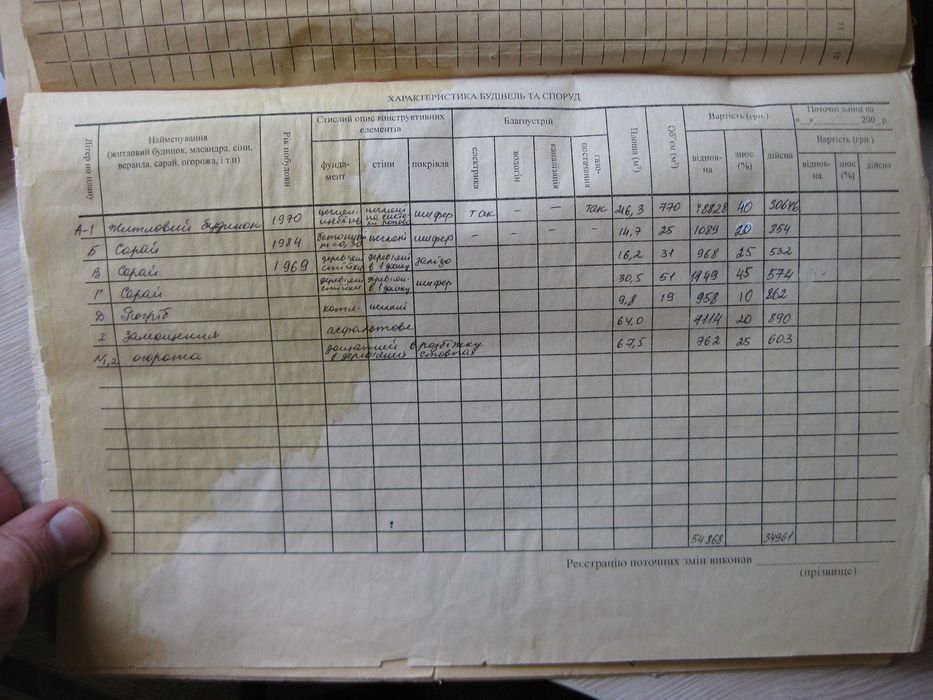 11 12
ХАРАКТЕРИСТИКА БУДІВЕЛЬ ТА СПОРУД
Літер по плану
Найменування
(житловий будинок, масандра, сіни,
веранда, сарай, огорожа, і т.п)
Рік побудови
Стислий опис конструктивних
елементів
фунда-
мент
стіни
покрівля
Благоустрій
електрика
водогін
каналізація
газо-
постачання
Площа (м²)
Об'єм (м³)
Вартість (грн.)
віднов-
на
знос
(%)
дійсна
Поточні зміни на
«__»________ 200_ р.
Вартість (грн.)
віднов-
на
знос
(%)
дійсна
А-1 Житловий будинок 1970 шифер так – – так 770 40 30646
Б Сарай 1984 цегляні шифер – – – – 14,7 25 1089 20 854
В Сарай 1969 дерев'яні стійки залізо 16,2 31 968 25 532
Г Сарай дерев'яні стійки шифер 30,5 51 45 574
Д Погріб цегляні 9,8 19 958 10 862
І Замощення асфальтове 64,0 20 890
N1,2 огорожа дощатий в розбіжку 67,5 762 25 603
54868 34961
Реєстрацію поточних змін виконав
(прізвище)